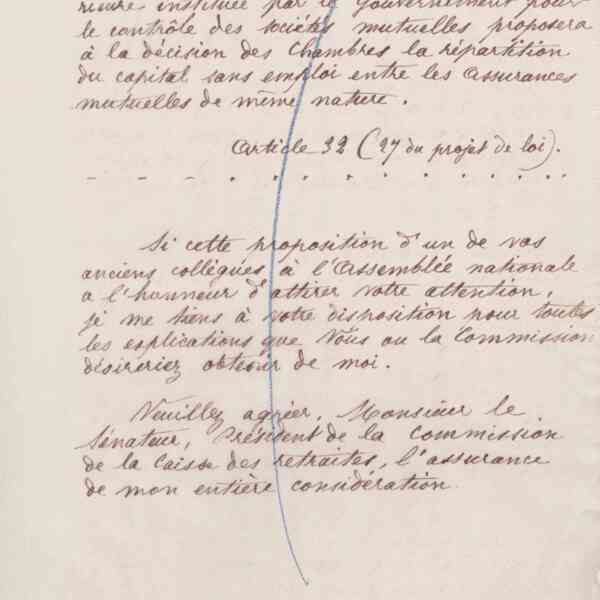 instituée par le Gouvernement pour
le contrôle des sociétés mutuelles proposera
à la décision des Chambres la répartition
du capital sans emploi entre les assurances
mutuelles de même nature.
Article 32 (27 du projet de loi).
Si cette proposition d'un de vos
anciens collègues à l'Assemblée nationale
a l'honneur d'attirer votre attention,
je me tiens à votre disposition pour toutes
les explications que Vous ou la Commission
désireriez obtenir de moi.
Veuillez agréer, Monsieur le
Sénateur, Président de la Commission
de la Caisse des retraites, l'assurance
de mon entière considération.